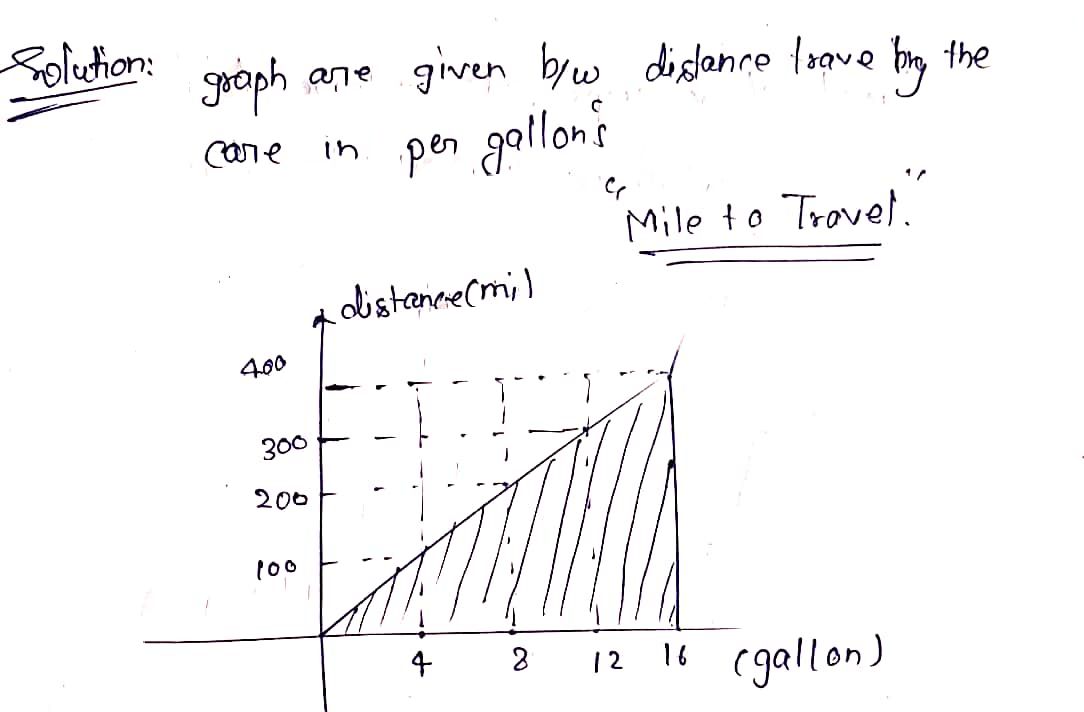 Solution: graph are given b/w distance trave by the
care in per gallon's
"Mile to Travel."
distance(mil
400
300
200
100
4 8 12 16 (gallon)